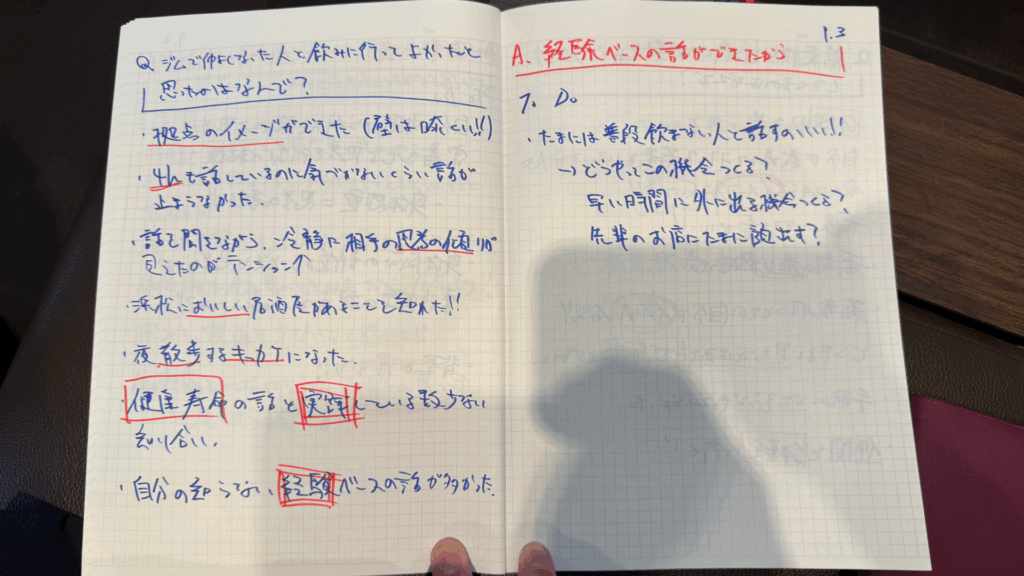 Q ジムで仲良くなった人と飲みに行ってよかったと
思ったのはなんで?
・拠点のイメージができた(壁は曖くい!!)
・4hも話しているのに気づかないくらい話が
止まらなかった.
・話を聞きながら、冷静に相手の思考の傾りが
見えたのがテンション↑
・浜松においしい居酒屋があることを知れた!!
・夜散歩するキッカケになった.
・健康寿命の話と実践している数少ない
知り合い.
・自分の知らない経験ベースの話が多かった.
1.3
A. 経験ベースの話ができたから
7. Do
・たまには普段飲まない人と話すのいい!!
→どうやってこの機会つくる?
早い時間に外に出る機会つくる?
先輩のお店にたまに顔出す?